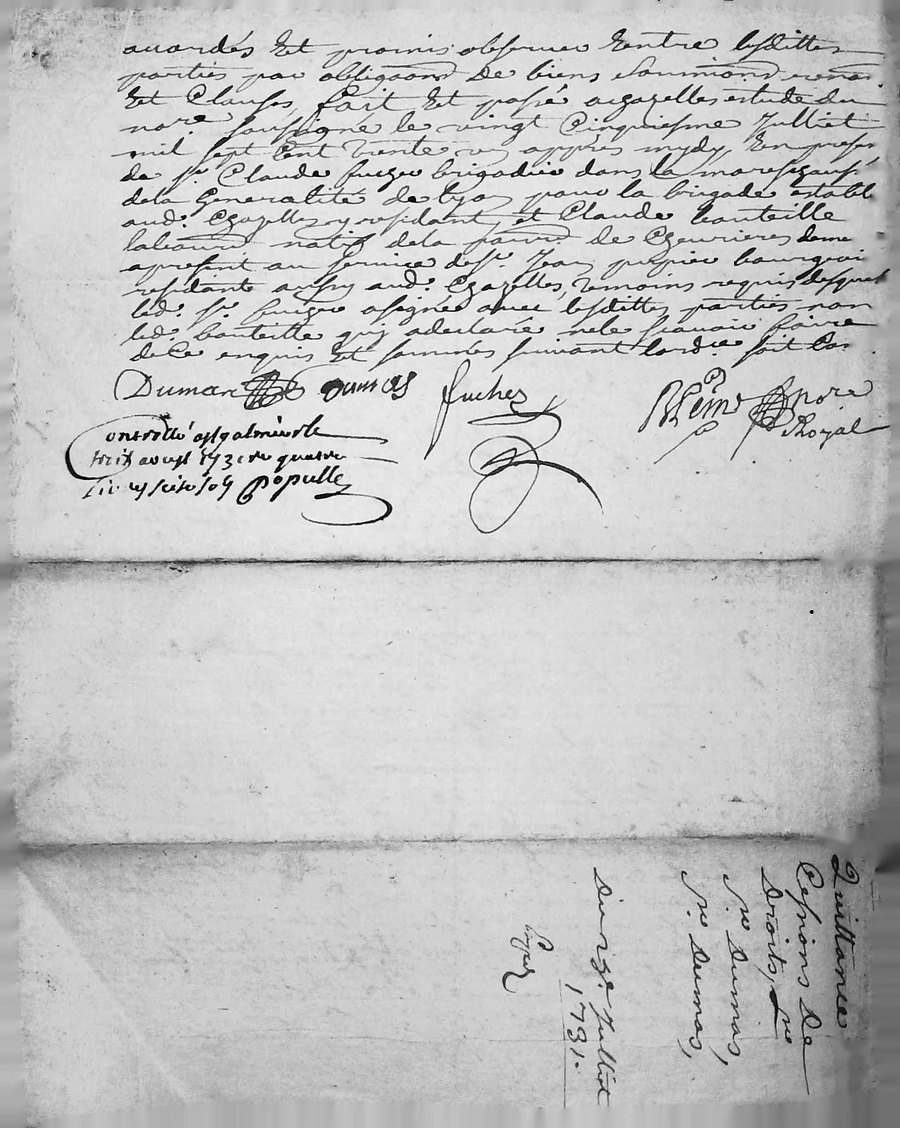 accordés Et promis observer Entre lesdittes
parties par obligaons De biens Soumions renon
Et Clauses, fait Et passé a Chazelles estude du
nore soussigné le vingt Cinquiesme Julliet
mil sept Cent trente un appres mydy, En presen
de sr. Claude fucher brigadier dans la mareschaussé
dela Generalité de Lyon pour la brigade establ
aud. Chazelles y residant, et Claude bouteille
laboureur natif dela parr. de Chevrieres deme
apresent au service de sr. Jean bourgeois
residants aussy aud. Chazelles, temoins requis desquels
led. sr. fucher a signé avec lesdittes parties non
led. bouteille quy a declaré ne le sçavoir faire
de Ce enquis Et sommés suivant lordce soit Con
Dumas Dumas fucher nore Royal
Controllé a st galmier le
huit aoust 1731 re quatre
livres seise sols Populle
Quittance
Cessions De
Droits, pr
Sr. Dumas,
Sr. Dumas,
Du 25e. Julliet
1731.